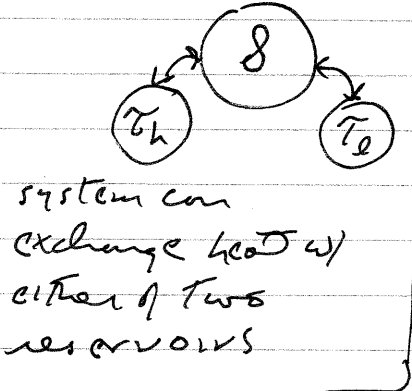 8
τh
τl
system can
exchange heat w/
either of two
reservoirs